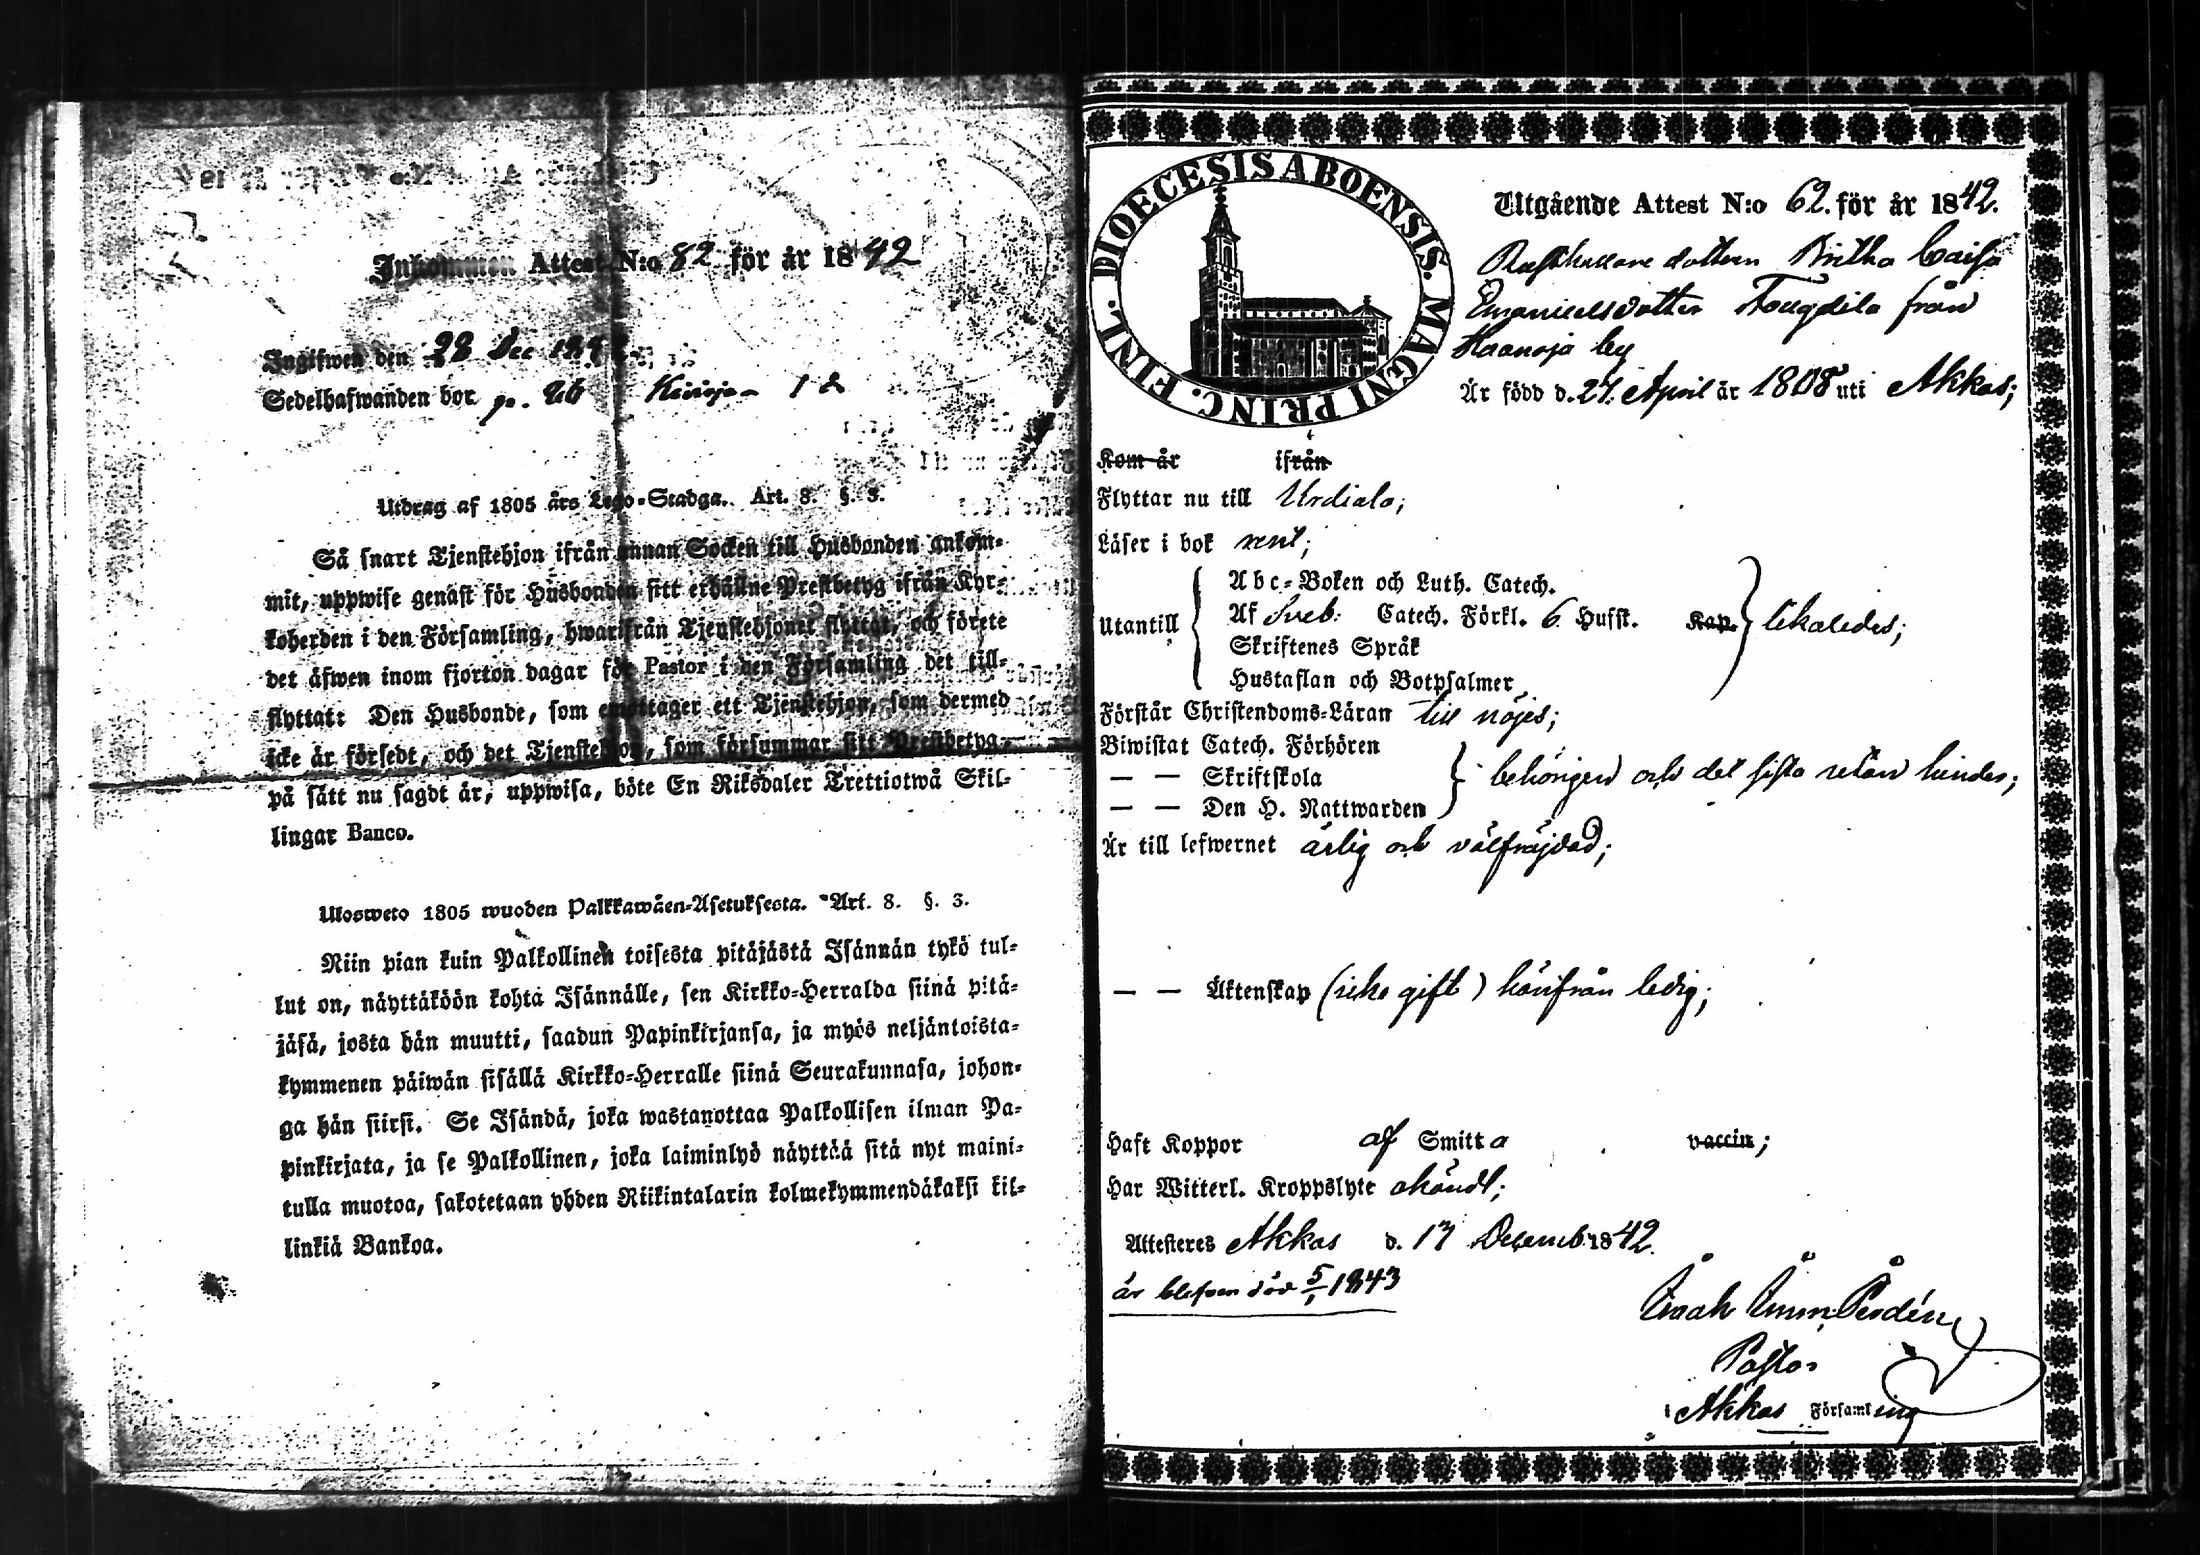 Inkommen Attest N:o 82 för år 1842
Ingifwen den 28 Dec 184
Sedelhafwanden bor
Utdrag af 1805 års Lego-Stadga. Art. 8. §. 3.
Så snart Tjenstehjon ifrån annan Socken till Husbonden ankom-
mit, uppwise genast för Husbonden sitt erhållne Prestbetyg ifrån Kyr-
koherden i den Församling, hwarifrån Tjenstehjonet flyttat, och förete
det äfwen inom fjorton dagar för Pastor i den Församling det till-
flyttat: Den Husbonde, som emottager ett Tjenstehjon, som dermed
icke är försedt, och det Tjenstehjon, som försummar sitt Prestbetyg,
på sätt nu sagdt är, uppwisa, böte En Riksdaler Trettiotwå Skil-
lingar Banco.
Ulosweto 1805 wuoden Palkkawäen-Asetuksesta. Art. 8. §. 3.
Niin pian kuin Palkollinen toisesta pitäjästä Isännän tykö tul-
lut on, näyttäköön kohta Isännälle, sen Kirkko-Herralda siinä pitä-
jäsä, josta hän muutti, saadun Papinkirjansa, ja myös neljäntoista-
kymmenen päiwän sisällä Kirkko-Herralle siinä Seurakunnasa, johon-
ga hän siirsi. Se Isändä, joka wastanottaa Palkollisen ilman Pa-
pinkirjata, ja se Palkollinen, joka laiminlyö näyttää sitä nyt maini-
tulla muotoa, sakotetaan yhden Riikintalarin kolmekymmendäkaksi kil-
linkiä Bankoa.
DIOECESIS ABOENSIS. MAGNI PRINC. FINL.
Utgående Attest N:o 62. för år 1842.
dottern Britha Caisa
Emanuelsdotter från
Haanoja by
Är född d. 27. April år 1808 uti Akkas;
Kom år ifrån
Flyttar nu till Urdiala;
Läser i bok rent;
Utantill
Abc-Boken och Luth. Catech.
Af Sveb: Catech. Förkl. 6 Hufst. Kap. likaledes;
Skriftenes Språk
Hustaflan och Botpsalmer
Förstår Christendoms-Läran till nöjes;
Biwistat Catech. Förhören
— — Skriftskola
— — Den H. Nattwarden
behörigen och det sista utan hinder;
Är till lefwernet ärlig och välfräjdad;
— — Äktenskap (icke gift) härifrån ledig;
Haft Koppor af Smitta vaccin;
Har Witterl. Kroppslyte okändt;
Attesteres Akkas d. 17 Decemb. 1842.
är blefven död 5/1 1843
Pastor
i Akkas Församling